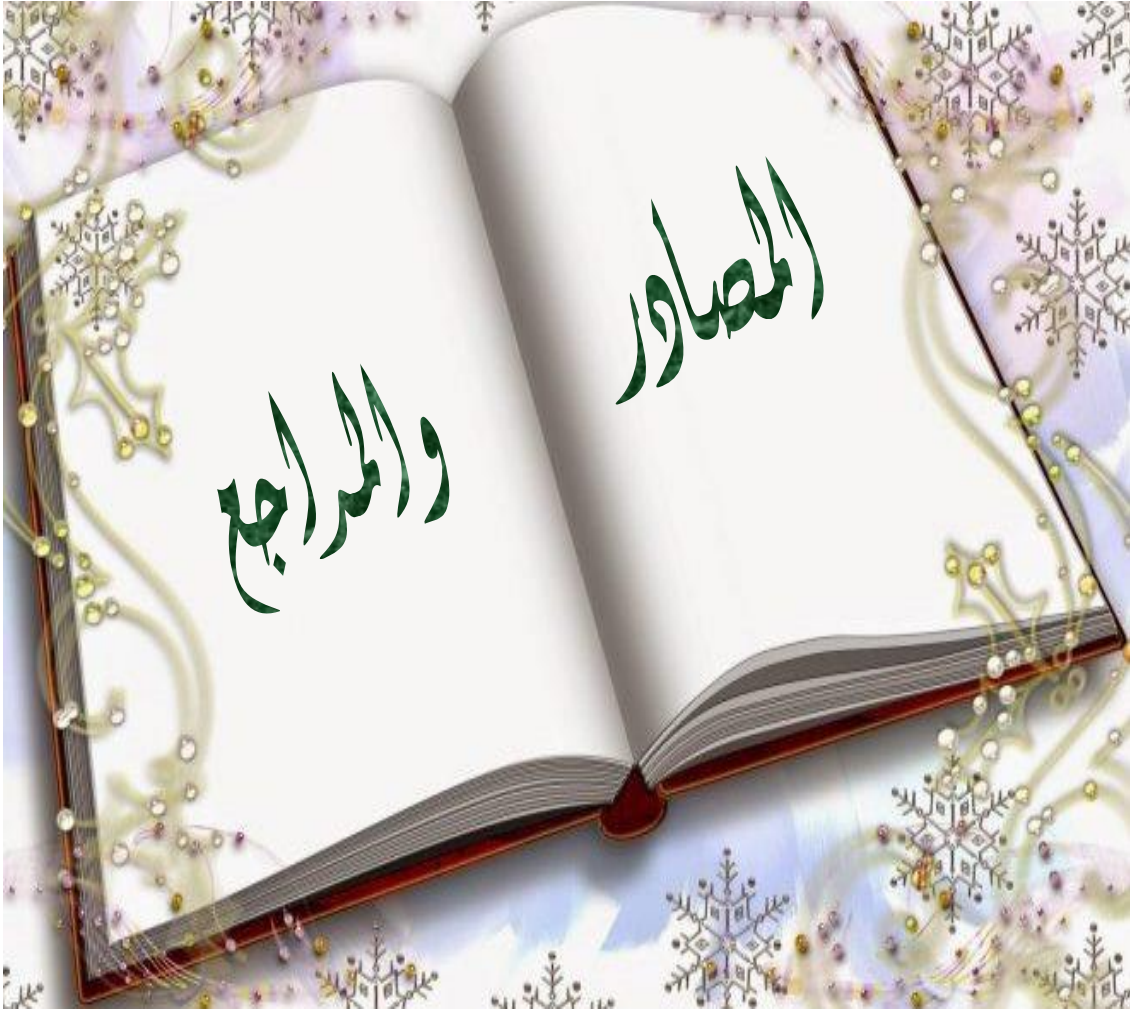 المصادر
والمراجع